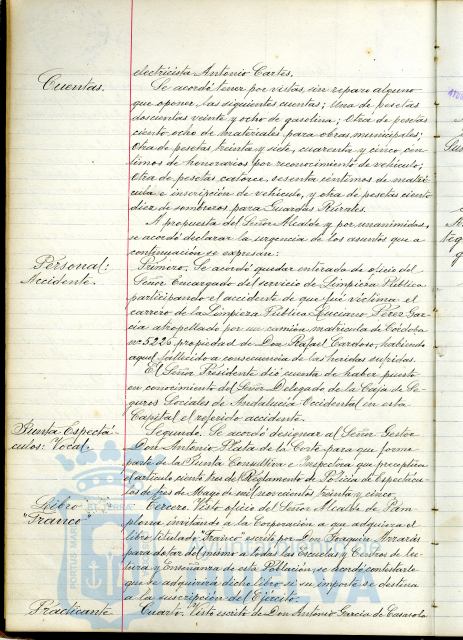 electricista Antonio Cartes.
Cuentas.
Se acordó tener por vistas, sin reparo alguno
que oponer, las siguientes cuentas; Una de pesetas
doscientas veinte y ocho de gasolina; Otra de pesetas
ciento ocho de materiales para obras municipales;
Otra de pesetas treinta y siete, cuarenta y cinco cén-
timos de honorarios por reconocimiento de vehículo;
Otra de pesetas catorce, sesenta céntimos de matrí-
cula e inscripción de vehículo, y otra de pesetas ciento
diez de sombreros para Guardas Rurales.
A propuesta del Señor Alcalde y por unanimidad,
se acordó declarar la urgencia de los asuntos que a
continuación se expresan:
Personal:
Accidente.
Primero. Se acordó quedar enterada de oficio del
Señor Encargado del servicio de Limpieza Pública
participando el accidente de que fué víctima el
carrero de la Limpieza Pública Luciano Pérez Gar-
cía atropellado por un camión matrícula de Córdoba
nº 5226 propiedad de Don Rafael Cardoso, habiendo
aquel fallecido a consecuencia de las heridas sufridas.
El Señor Presidente dió cuenta de haber puesto
en conocimiento del Señor Delegado de la Caja de Se-
guros Sociales de Andalucía Occidental en esta
Capital el referido accidente.
Junta Espectá-
culos: Vocal.
Segundo. Se acordó designar al Señor Gestor
Don Antonio Plata de la Corte para que forme
parte de la Junta Consultiva e Inspectora que preceptúa
el artículo ciento tres del Reglamento de Policía de Espectácu-
los de tres de Mayo de mil novecientos treinta y cinco.
Libro
"Franco"
Tercero. Visto oficio del Señor Alcalde de Pam-
plona invitando a la Corporación a que adquiera el
libro titulado "Franco" escrito por Don Joaquín Arrarás
para dotar del mismo a todas las Escuelas y Centros de lec-
tura y Enseñanza de esta Población, se acordó contestarle
que se adquirirá dicho libro si su importe se destina
a la suscripción del Ejército.
Practicante
Cuarto. Visto escrito de Don Antonio García de Casasola